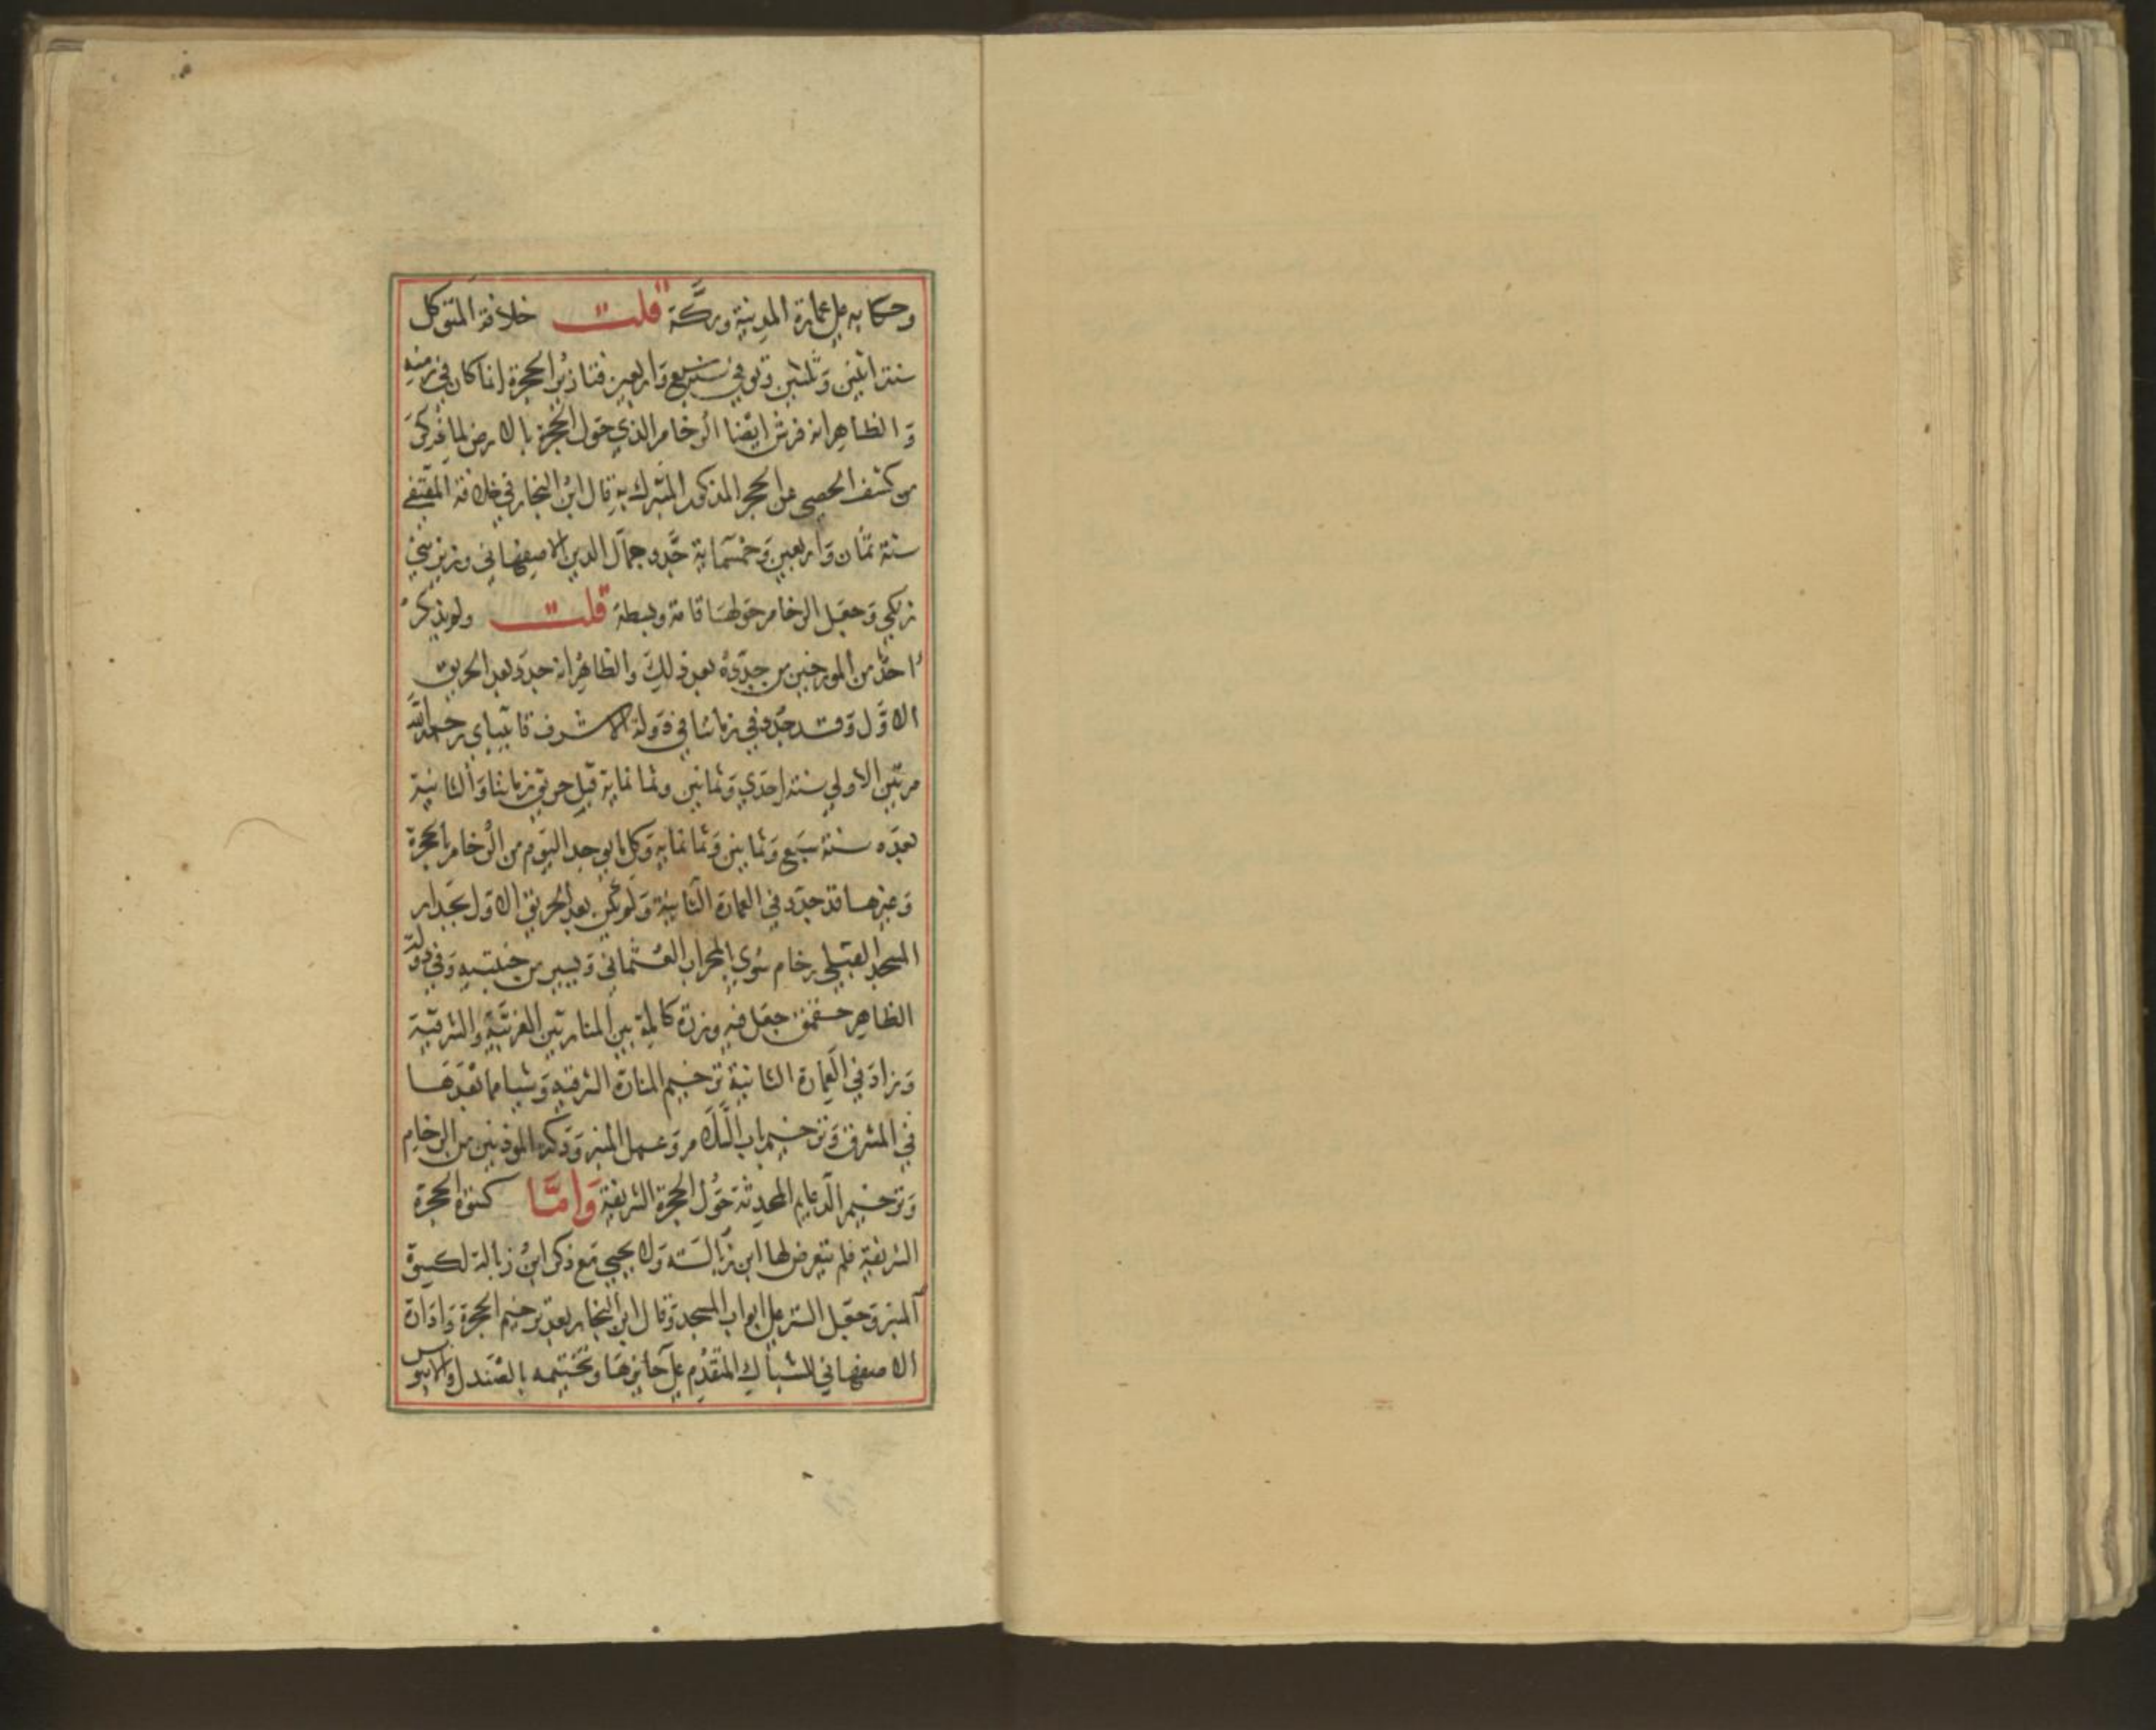 وحكا به على عمارة المدينة ومكة قلت خلافة المتوكل
سنة اثنين وثلثين وتوفي في سنة سبع واربعين فتازير الحجرة انما كان في زمنه
والظاهر انه فرش ايضا الرخام الذي حول الحجرة بالارض لما ذكر
من كشف الحصى عن الحجر المذكور المتبرك به قال ابن النجار في خلافة المقتفي
سنة ثمان واربعين وخمسماية جدد جمال الدين الاصفهاني وزير بني
زنكي وجعل الرخام حولها قامة وبسطة قلت ولم يذكر
احد من المورخين من جدده بعد ذلك والظاهر انه جدد بعد الحريق
الاول وقد جدد في زماننا في دولة الاشرف قايتباي رحمه الله
مرتين الاولي سنة احدي وثمانين وثمانماية قبل حريق زماننا والثانية
بعده سنة سبع وثمانين وثمانماية وكل ما يوجد اليوم من الرخام بالحجرة
وغيرها قد جدد في العمارة الثانية ولم يكن بعد الحريق الاول بجدار
المسجد القبلي رخام سوي المحراب العثماني ويسير من جنبتيه وفي دولة
الظاهر جقمق جعل فيه وزرة كاملة بين المنارتين الغربية والشرقية
وزاد في العمارة الثانية ترخيم المنارة الشرقية وشيا مما بعدها
في المشرق وترخيم باب السلام وعمل المنبر ودكة الموذنين من الرخام
وترخيم الدعايم المحدثة حول الحجرة الشريفة واما كسوة الحجرة
الشريفة فلم يتعرض لها ابن زبالة ولا يحيي مع ذكر ابن زبالة لكسوة
المنبر وجعل الستر على ابواب المسجد وقال ابن النجار بعد ترخيم الحجرة وادارة
الاصفهاني للشباك المتقدم على حايزها وتختيمه بالصندل والابنوس